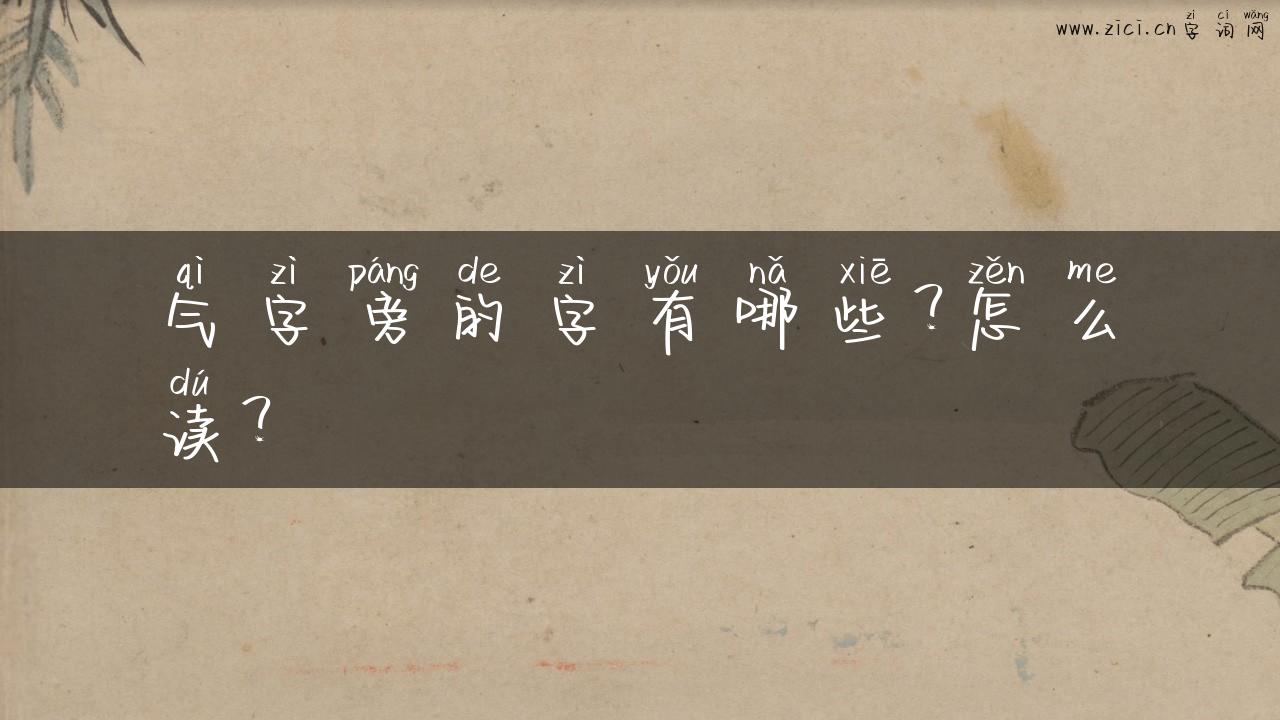 www.zici.cn 字词网
zì cí wǎng
qì zì páng de zì yǒu nǎ xiē zěn me
气字旁的字有哪些？怎么
dú
读？